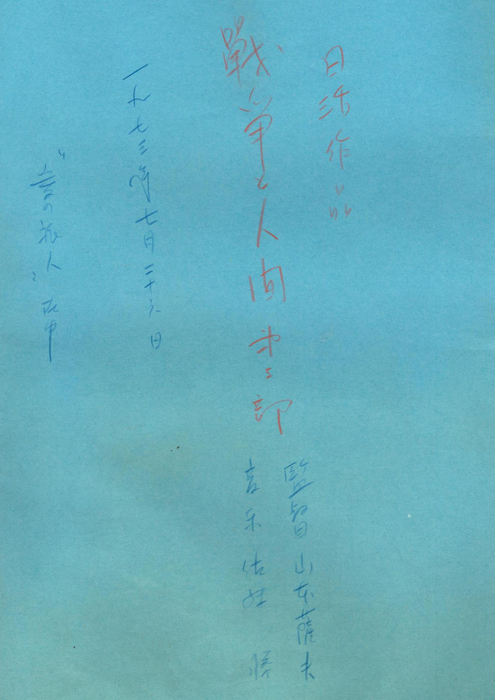 日活作品
戰爭と人間 第三部
監督 山本薩夫
音乐 佐藤 勝
一九七三年七月二十六日
"音の旅人"